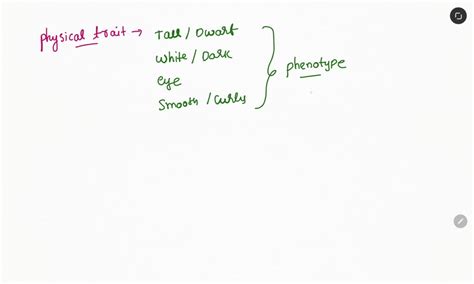 physical trait → Tall / Dwarf
White / Dark
eye
Smooth / Curly
phenotype